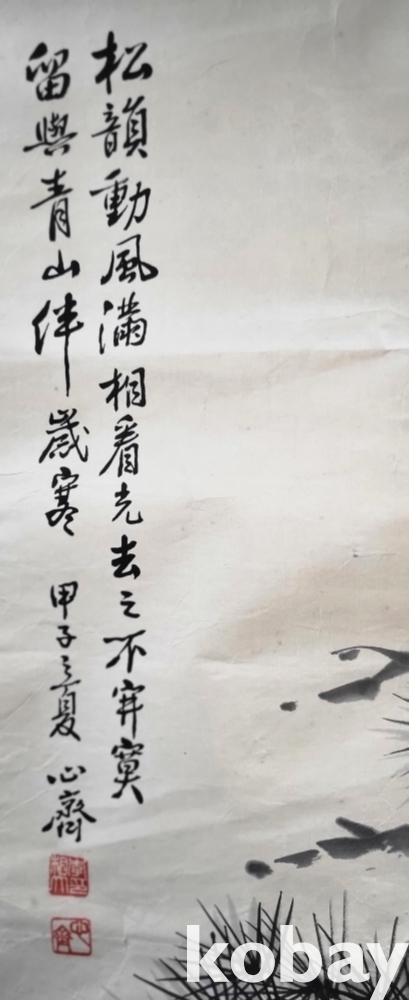 松韻動風滿相看去之不寂寞
留與青山伴歲寒 甲子之夏 心齋
心齋
kobay